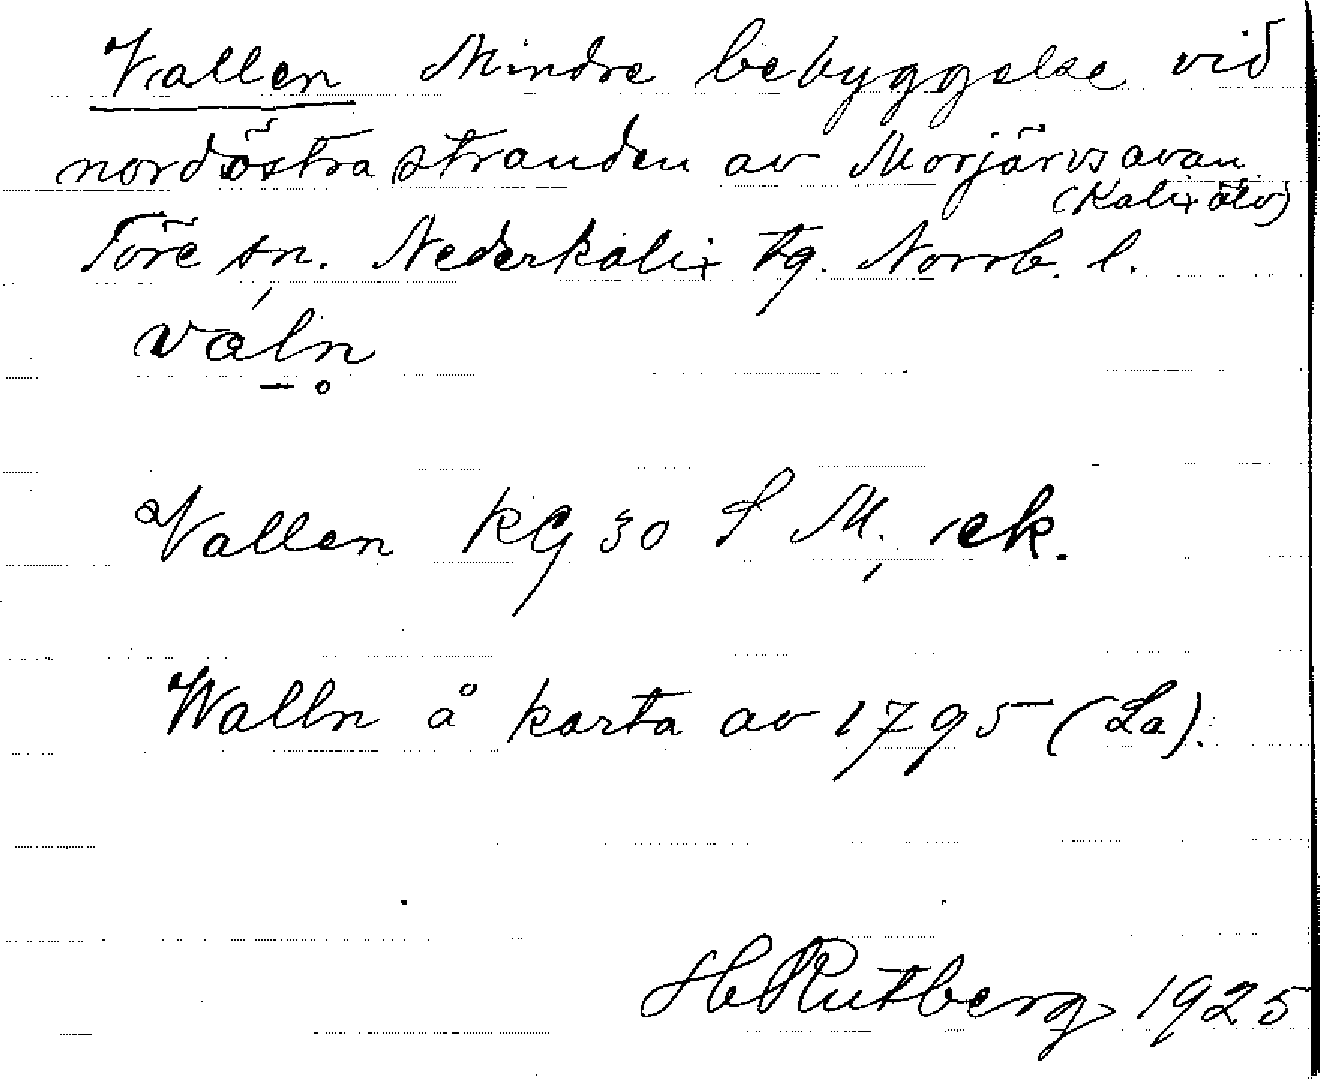 Vallen Mindre bebyggelse vid
nordöstra stranden av Morjärvsavan
(Kalix älv)
Töre sn. Nederkalix tg. Norrb. l.
váln
Vallen KG 30 S M., ek.
Walln å karta av 1795 (La).
H Rutberg 1925